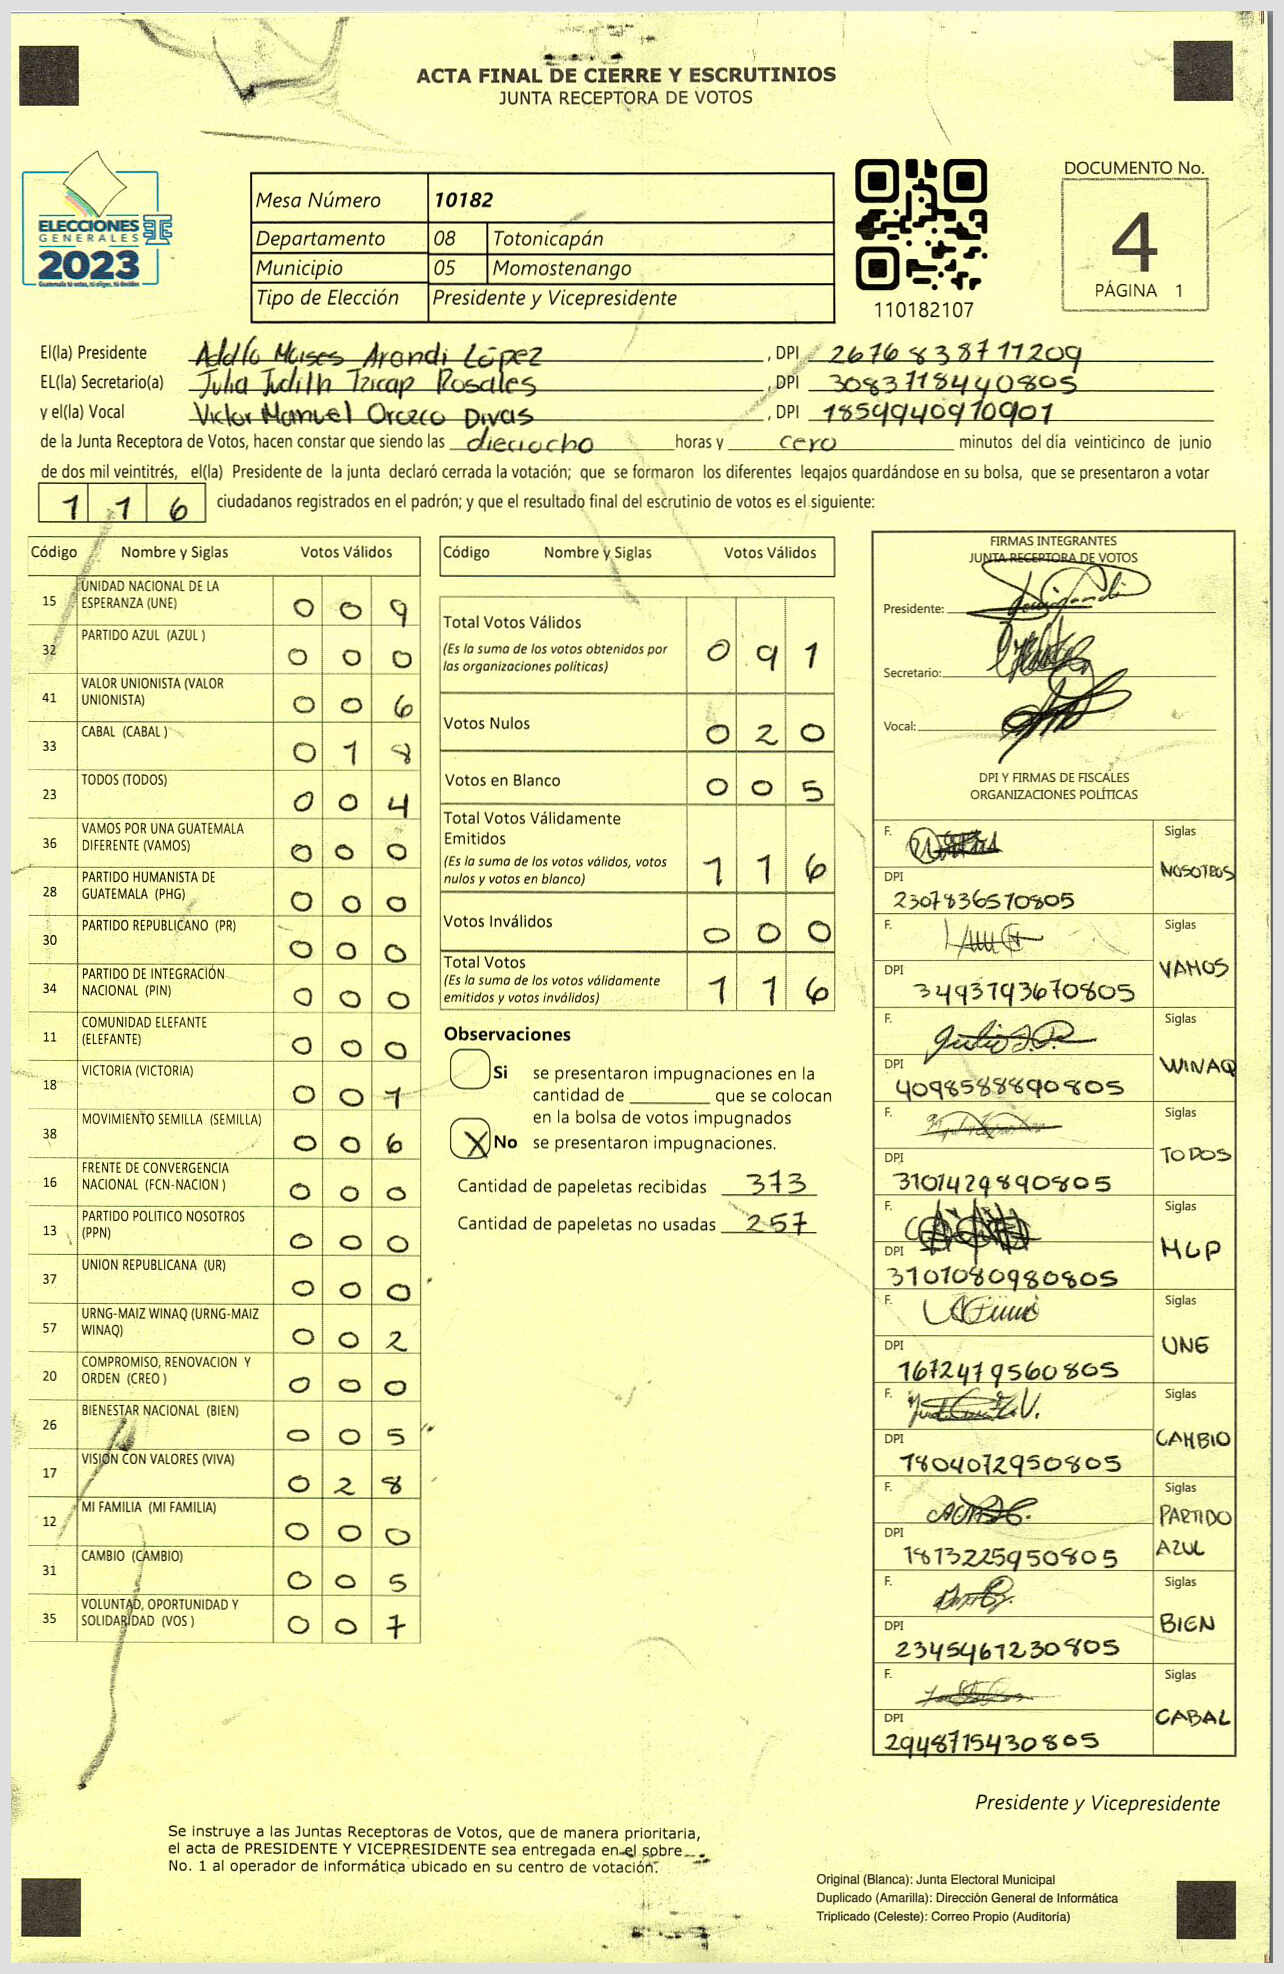 ACTA FINAL DE CIERRE Y ESCRUTINIOS
JUNTA RECEPTORA DE VOTOS
ELECCIONES
GENERALES
2023
Guatemala tú votas, tú eliges, tú decides
Mesa Número 10182
Departamento 08 Totonicapán
Municipio 05 Momostenango
Tipo de Elección Presidente y Vicepresidente
110182107
DOCUMENTO No.
4
PÁGINA 1
El(la) Presidente Adolfo Moises Arandi López, DPI 2676838711209
EL(la) Secretario(a) Julia Judith Tzicap Rosales, DPI 3083718440805
y el(la) Vocal Victor Manuel Orozco Divas, DPI 1859940970901
de la Junta Receptora de Votos, hacen constar que siendo las dieciocho horas y cero minutos del día veinticinco de junio
de dos mil veintitrés, el(la) Presidente de la junta declaró cerrada la votación; que se formaron los diferentes legajos quardándose en su bolsa, que se presentaron a votar
116 ciudadanos registrados en el padrón; y que el resultado final del escrutinio de votos es el siguiente:
Código Nombre y Siglas Votos Válidos
15 UNIDAD NACIONAL DE LA ESPERANZA (UNE) 0 0 9
32 PARTIDO AZUL (AZUL ) 0 0 0
41 VALOR UNIONISTA (VALOR UNIONISTA) 0 0 6
33 CABAL (CABAL ) 0 1 8
23 TODOS (TODOS) 0 0 4
36 VAMOS POR UNA GUATEMALA DIFERENTE (VAMOS) 0 0 0
28 PARTIDO HUMANISTA DE GUATEMALA (PHG) 0 0 0
30 PARTIDO REPUBLICANO (PR) 0 0 0
34 PARTIDO DE INTEGRACIÓN NACIONAL (PIN) 0 0 0
11 COMUNIDAD ELEFANTE (ELEFANTE) 0 0 0
18 VICTORIA (VICTORIA) 0 0 1
38 MOVIMIENTO SEMILLA (SEMILLA) 0 0 6
16 FRENTE DE CONVERGENCIA NACIONAL (FCN-NACION ) 0 0 0
13 PARTIDO POLITICO NOSOTROS (PPN) 0 0 0
37 UNION REPUBLICANA (UR) 0 0 0
57 URNG-MAIZ WINAQ (URNG-MAIZ WINAQ) 0 0 2
20 COMPROMISO, RENOVACION Y ORDEN (CREO ) 0 0 0
26 BIENESTAR NACIONAL (BIEN) 0 0 5
17 VISION CON VALORES (VIVA) 0 2 8
12 MI FAMILIA (MI FAMILIA) 0 0 0
31 CAMBIO (CAMBIO) 0 0 5
35 VOLUNTAD, OPORTUNIDAD Y SOLIDARIDAD (VOS ) 0 0 7
Código Nombre y Siglas Votos Válidos
Total Votos Válidos 0 9 1
(Es la suma de los votos obtenidos por
las organizaciones políticas)
Votos Nulos 0 2 0
Votos en Blanco 0 0 5
Total Votos Válidamente
Emitidos
(Es la suma de los votos válidos, votos
nulos y votos en blanco) 1 1 6
Votos Inválidos 0 0 0
Total Votos
(Es la suma de los votos válidamente
emitidos y votos inválidos) 1 1 6
Observaciones
Si se presentaron impugnaciones en la
cantidad de ________ que se colocan
en la bolsa de votos impugnados
X No se presentaron impugnaciones.
Cantidad de papeletas recibidas 373
Cantidad de papeletas no usadas 257
FIRMAS INTEGRANTES
JUNTA RECEPTORA DE VOTOS
Presidente:
Secretario:
Vocal:
DPI Y FIRMAS DE FISCALES
ORGANIZACIONES POLÍTICAS
F. Siglas
NOSOTROS
DPI
2307836570805
F. Siglas
VAMOS
DPI
3493793670805
F. Siglas
WINAQ
DPI
4098588890805
F. Siglas
TODOS
DPI
3101429890805
F. Siglas
MLP
DPI
3101080980805
F. Siglas
UNE
DPI
1672479560805
F. Siglas
CAMBIO
DPI
1804072950805
F. Siglas
PARTIDO
AZUL
DPI
1813225950805
F. Siglas
BIEN
DPI
2345461230805
F. Siglas
CABAL
DPI
2948715430805
Presidente y Vicepresidente
Se instruye a las Juntas Receptoras de Votos, que de manera prioritaria,
el acta de PRESIDENTE Y VICEPRESIDENTE sea entregada en el sobre
No. 1 al operador de informática ubicado en su centro de votación.
Original (Blanca): Junta Electoral Municipal
Duplicado (Amarilla): Dirección General de Informática
Triplicado (Celeste): Correo Propio (Auditoría)